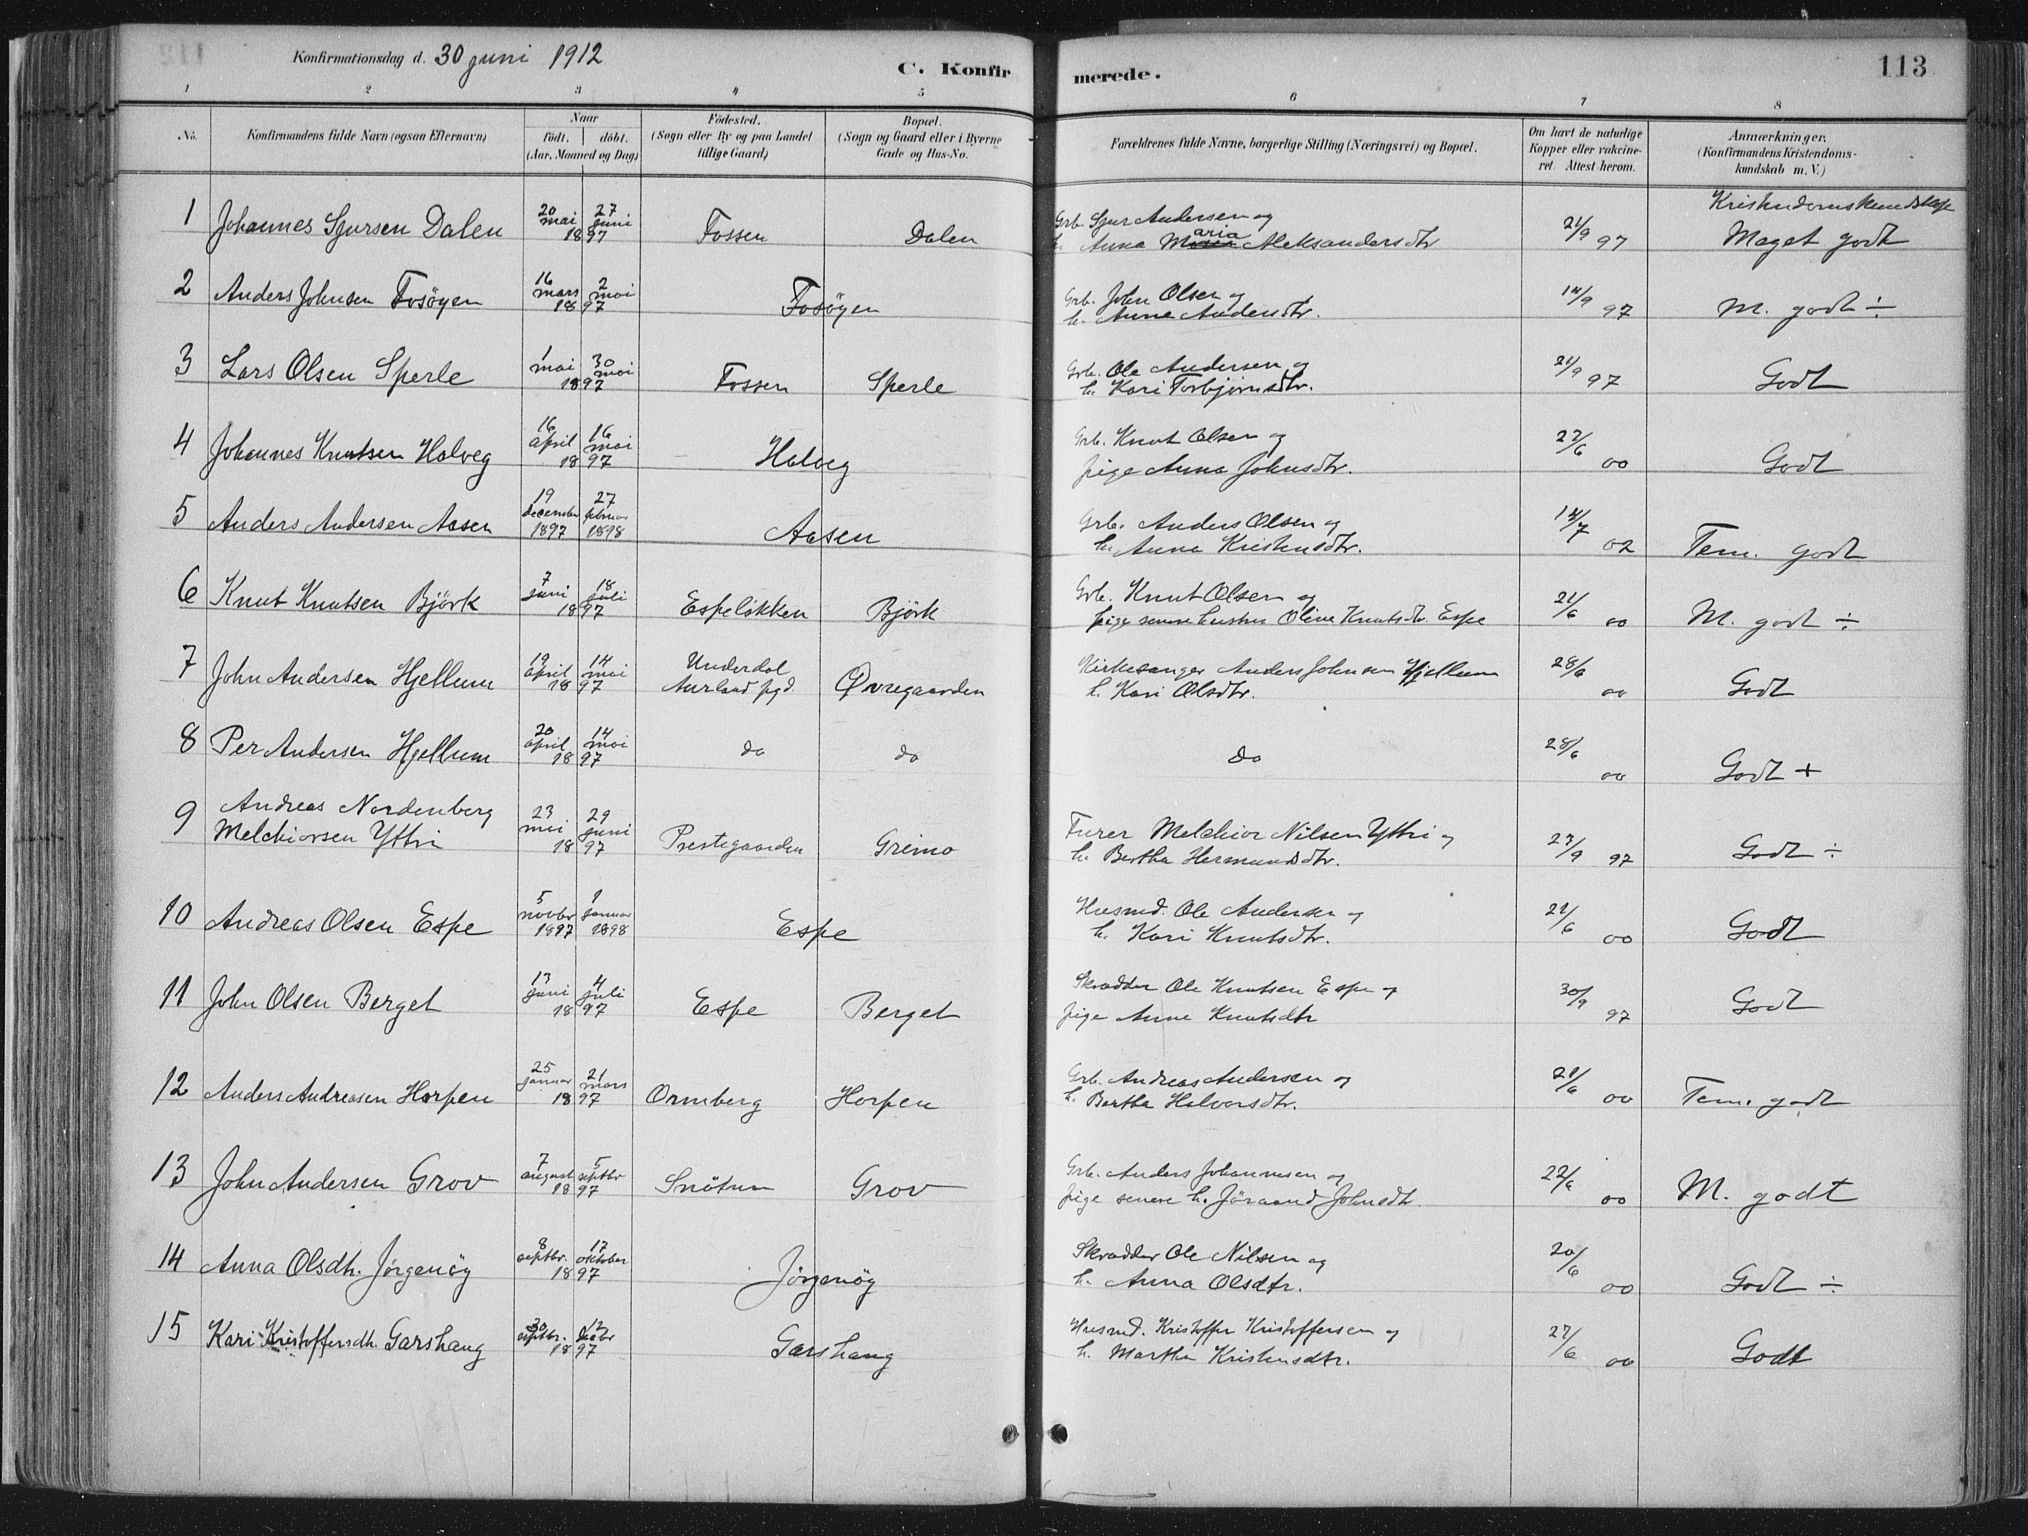 Konfirmationsdag d. 30 juni 1912
C. Konfirmerede.
113
1 2 3 4 5 6 7 8
No.
Konfirmandens fulde Navn (ogsaa Efternavn)
Naar
födt. döbt.
(Aar, Maaned og Dag)
Födested.
(Sogn eller By og paa Landet
tillige Gaard)
Bopæl.
(Sogn og Gaard eller i Byerne
Gade og Hus-No.
Forældrenes fulde Navne, borgerlige Stilling (Næringsvei) og Bopæl.
Om havt de naturlige
Kopper eller vakcine-
ret. Attest herom.
Anmærkninger.
(Konfirmandens Kristendoms-
kundskab m. V.)
Kristendomskundskap
1 Johannes Sjursen Dalen 20 mai 27 juni 1897 Fossen Dalen
Grb. Sjur Andersen og
h. Anna Maria Aleksandersdtr 21/9 97 Meget godt
2 Anders Johnsen Fosöyen 16 mars 2 mai 1897 Fosöyen
Grb. John Olsen og
h. Anna Andersdtr. 14/9 97 M. godt ÷
3 Lars Olsen Sperle 1 mai 30 mai 1897 Fossen Sperle
Grb. Ole Andersen og
h. Kari Torbjörnsdtr. 21/9 97 Godt
4 Johannes Knutsen Halveg 16 april 16 mai 1897 Halveg
Grb. Knut Olsen og
pige Anna Johnsdtr. 22/6 00 Godt
5 Anders Andersen Aasen 19 december 1897 27 februar 1898 Aasen
Grb. Anders Olsen og
h. Anna Kristensdtr. 14/7 02 Tem. godt
6 Knut Knutsen Björk 7 juni 18 juli 1897 Espelökken Björk
Grb. Knut Olsen og
pige senere hustru Oline Knutsdtr. Espe 21/6 00 M. godt ÷
7 John Andersen Hjellum 19 april 14 mai 1897 Underdal
Aurland pgd. Øvregaarden
Kirkesanger Anders Johnsen Hjellum
h. Kari Olsdtr. 28/6 00 Godt
8 Per Andersen Hjellum 20 april 14 mai 1897 do do do 28/6 00 Godt +
9 Andreas Nordenberg
Melchiorsen Yttri 23 mai 29 juni 1897 Prestegaarden Grimo
Furer Melchior Nilsen Yttri og
h. Bertha Hermundsdtr. 23/9 97 Godt ÷
10 Andreas Olsen Espe 5 novbr 1897 1 januar 1898 Espe
Husmd. Ole Andersen og
h. Kari Knutsdtr. 21/6 00 Godt
11 John Olsen Berget 13 juni 4 juli 1897 Espe Berget
Skradder Ole Knutsen Espe og
pige Anne Knutsdtr 30/9 97 Godt
12 Anders Andreasen Horpen 25 januar 21 mars 1897 Ormberg Horpen
Grb. Andreas Andersen og
h. Bertha Halvorsdtr. 21/6 00 Tem. godt
13 John Andersen Grov 7 august 5 septbr 1897 Snötun Grov
Grb. Anders Johannesen og
pige senere h. Jöraand Johnsdtr. 22/6 00 M. godt
14 Anna Olsdtr. Jörgenöy 8 septbr. 17 oktober 1897 Jörgenöy
Skradder Ole Nilsen og
h. Anna Olsdtr. 20/6 00 Godt ÷
15 Kari Kristoffersdtr. Garshaug 30 septbr. 12 decbr 1897 Garshaug
Husmd. Kristoffer Kristoffersen og
h. Martha Kristensdtr. 27/6 00 Godt